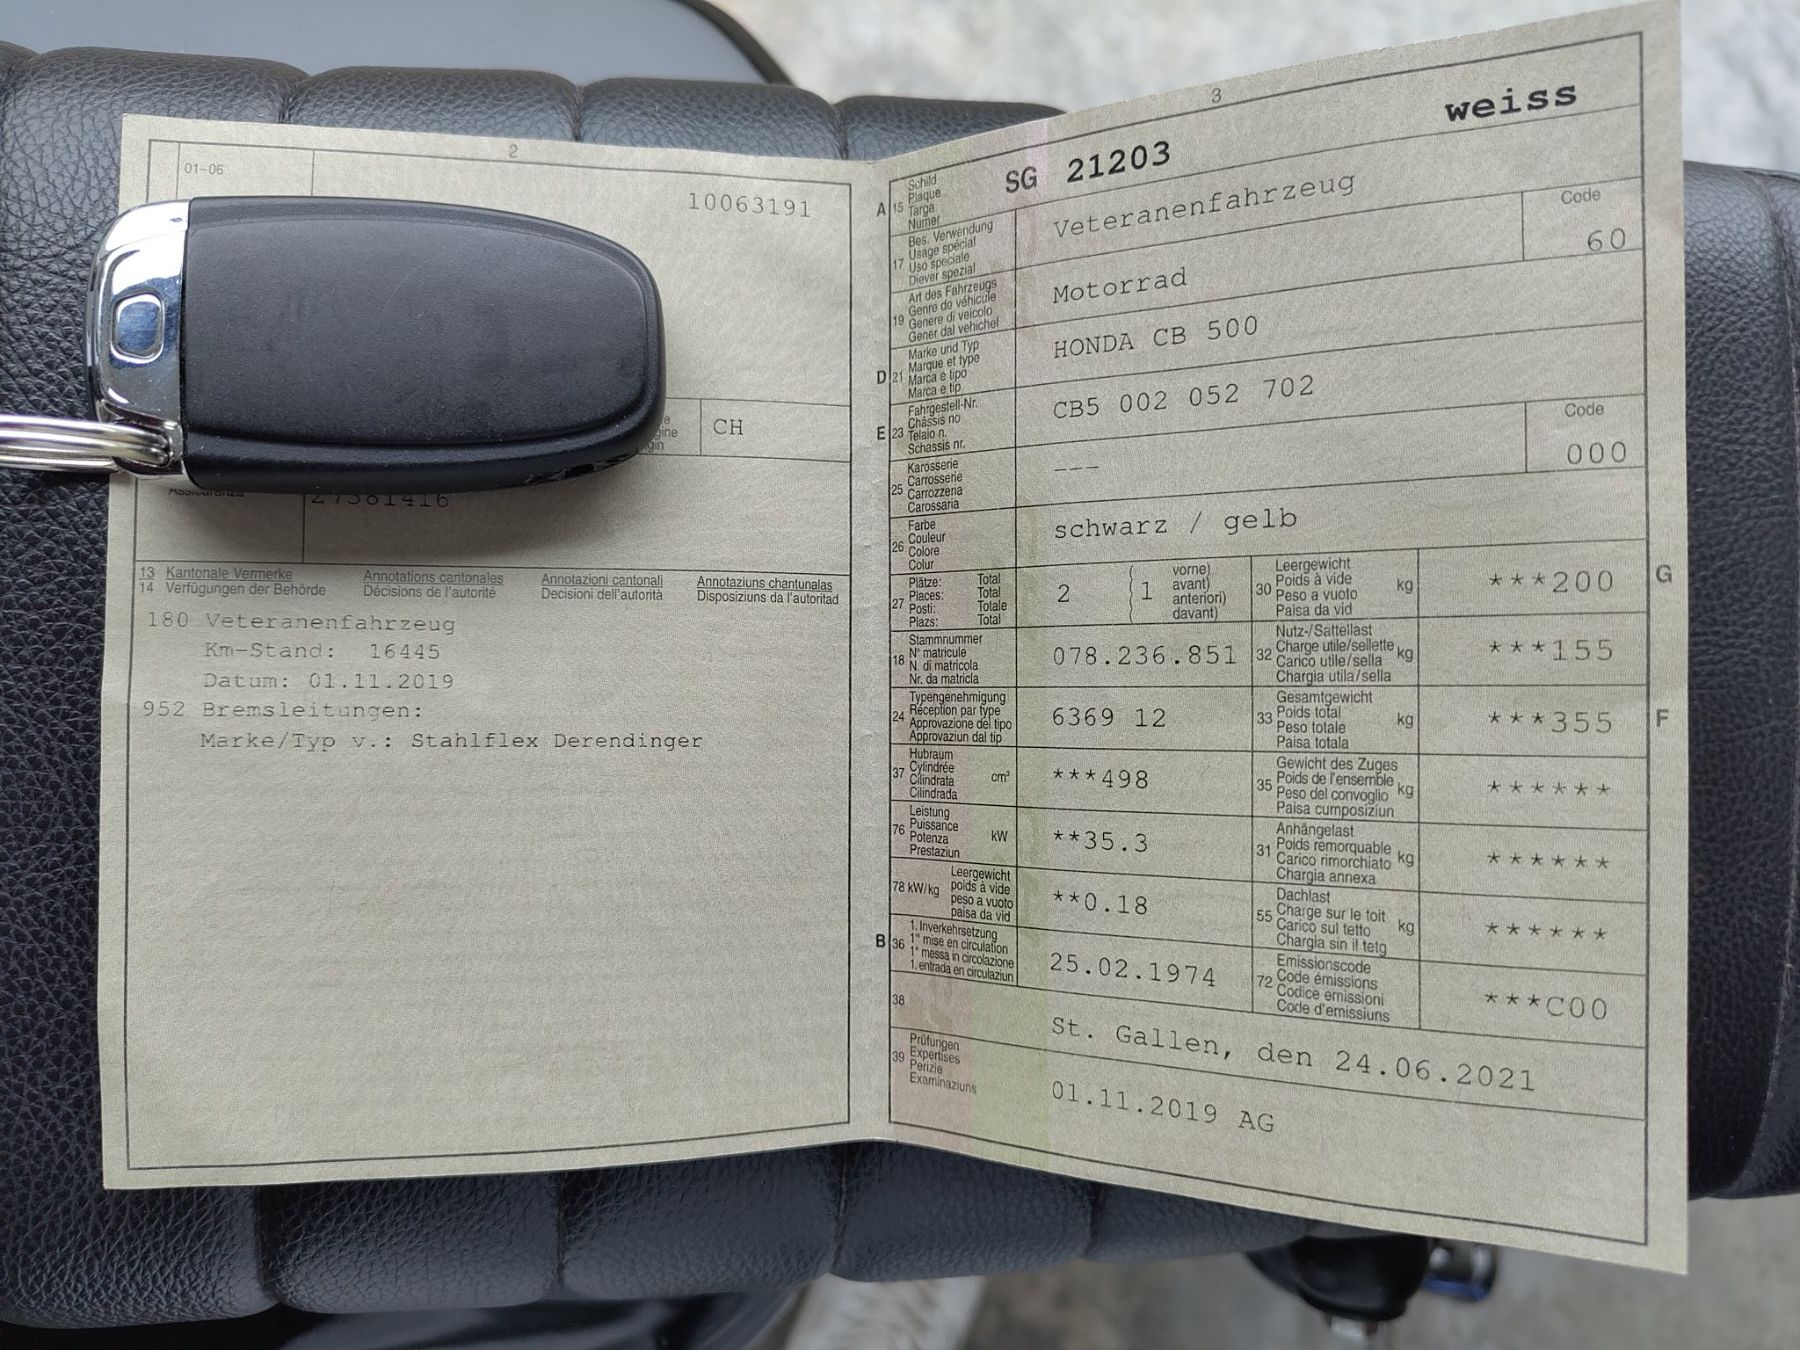 2
01-06
10063191
CH
13 Kantonale Vermerke Annotations cantonales Annotazioni cantonali Annotaziuns chantunalas
14 Verfügungen der Behörde Décisions de l'autorité Decisioni dell'autorità Disposiziuns da l'autoritad
180 Veteranenfahrzeug
Km-Stand: 16445
Datum: 01.11.2019
952 Bremsleitungen:
Marke/Typ v.: Stahlflex Derendinger
3
weiss
A 15 Schild
Plaque
Targa
Numer
SG 21203
17 Bes. Verwendung
Usage spécial
Uso speciale
Diever spezial
Veteranenfahrzeug
19 Art des Fahrzeugs
Genre de véhicule
Genere di veicolo
Gener dal vehichel
Motorrad
Code
60
D 21 Marke und Typ
Marque et type
Marca e tipo
Marca e tip
HONDA CB 500
E 23 Fahrgestell-Nr.
Châssis no
Telaio n.
Schassis nr.
CB5 002 052 702
25 Karosserie
Carrosserie
Carrozzeria
Carossaria
---
Code
000
26 Farbe
Couleur
Colore
Colur
schwarz / gelb
27 Plätze: Total
Places: Total
Posti: Totale
Plazs: Total
2 (1 vorne)
avant)
anteriori)
davant)
30 Leergewicht
Poids à vide kg
Peso a vuoto
Paisa da vid
***200 G
18 Stammnummer
N° matricule
N. di matricola
Nr. da matricla
078.236.851
32 Nutz-/Sattellast
Charge utile/sellette kg
Carico utile/sella
Chargia utila/sella
***155
24 Typengenehmigung
Réception par type
Approvazione del tipo
Approvaziun dal tip
6369 12
33 Gesamtgewicht
Poids total kg
Peso totale
Paisa totala
***355 F
37 Hubraum
Cylindrée cm³
Cilindrata
Cilindrada
***498
35 Gewicht des Zuges
Poids de l'ensemble kg
Peso del convoglio
Paisa cumposiziun
******
76 Leistung
Puissance kW
Potenza
Prestaziun
**35.3
31 Anhängelast
Poids remorquable kg
Carico rimorchiato
Chargia annexa
******
78 kW/kg Leergewicht
poids à vide
peso a vuoto
paisa da vid
**0.18
55 Dachlast
Charge sur le toit kg
Carico sul tetto
Chargia sin il tetg
******
B 36 1. Inverkehrsetzung
1re mise en circulation
1a messa in circolazione
1. entrada en circulaziun
25.02.1974
72 Emissionscode
Code émissions
Codice emissioni
Code d'emissiuns
***C00
38
St. Gallen, den 24.06.2021
39 Prüfungen
Expertises
Perizie
Examinaziuns
01.11.2019 AG